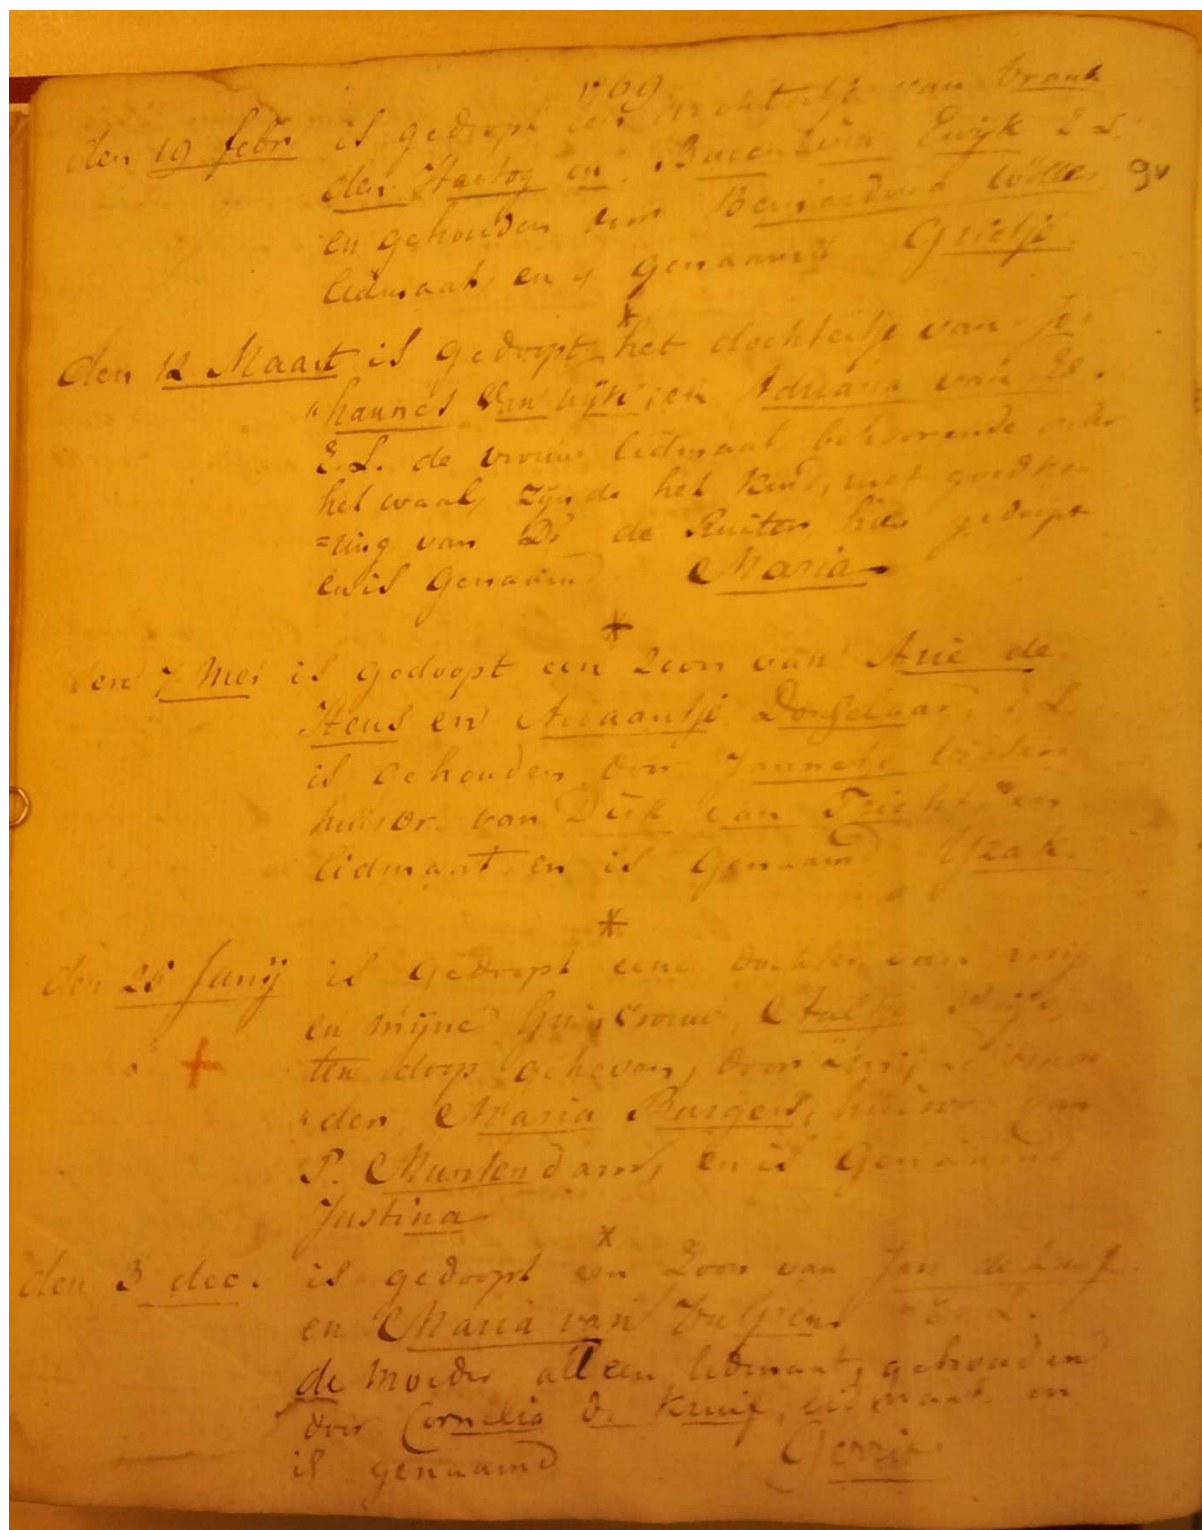 1769
den 19 febr is gedoopt een dochtertje van
den Hartog en Barentina Ewijk E L.
9v
en gehouden door Bernardina
lidmaat, en is genaamd Grietje
den 12 Maart is gedoopt het dochtertje van Jo-
"hannes van Wijk, en Adriana van Es.
E.L. de vrouw lidmaat behoorende onder
het waal, zijnde het kind, met goedkeu
=ring van Ds de Ruiter hier gedoopt
en is genaamd Maria
den 7 Mei is gedoopt een Zoon van Arie de
Heus en Ariaantje E L
is gehouden door Jannetje
huisvr. van Dirk van Tricht, en
lidmaat, en is genaamd Yzak.
den 25 Junij is gedoopt eene dochter van mij
en mijne huisvrouw,
ten doop geheven, door mijne
"der, Maria Burgers, huisvr van
P. Muntendam, en is genaamd
Justina
den 3 dec. is gedoopt een Zoon van Jan de
en Maria van Zulgen E. L.
de moeder alleen lidmaat, gehouden
door Cornelia d. Kruif, lidmaat en
is genaamd Gerrit